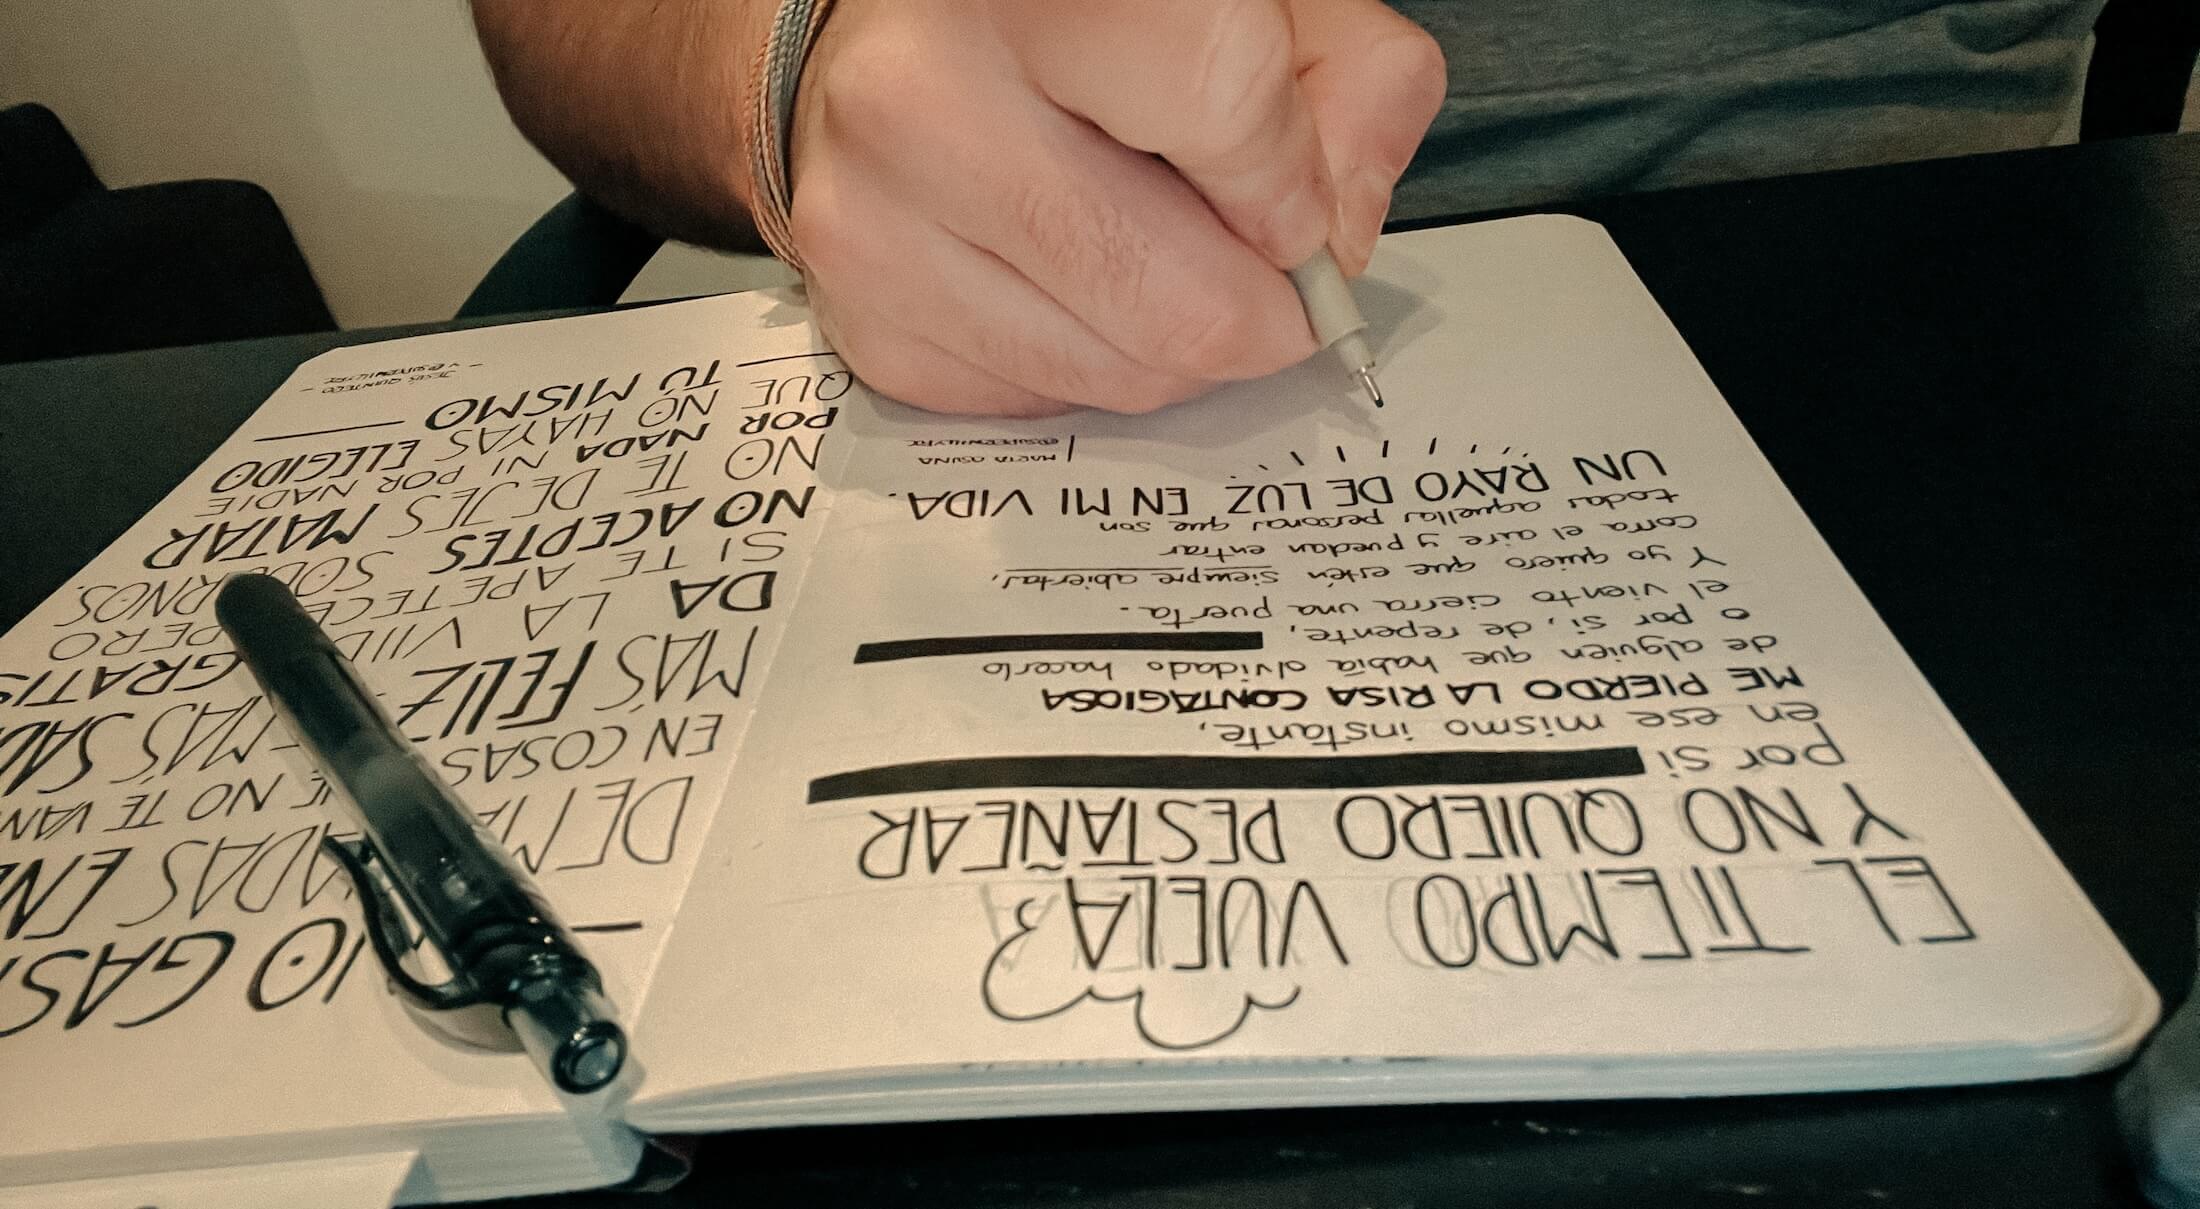 EL TIEMPO VUELA
Y NO QUIERO PESTAÑEAR
por si
en ese mismo instante,
ME PIERDO LA RISA CONTAGIOSA
de alguien que había olvidado hacerlo
o por si, de repente,
el viento cierra una puerta.
Y yo quiero que estén siempre abiertas,
corra el aire y puedan entrar
todas aquellas personas que son
UN RAYO DE LUZ EN MI VIDA.
MARTA OSUNA
EN COSAS NO TE VAN
MÁS FELIZ MÁS
DA LA GRATIS
SI TE APETECE PERO
NO ACEPTES SOBORNOS.
NO TE DEJES MATAR
POR NADA NI POR NADIE
QUE NO HAYAS ELEGIDO
TÚ MISMO
JESÚS QUINTERO